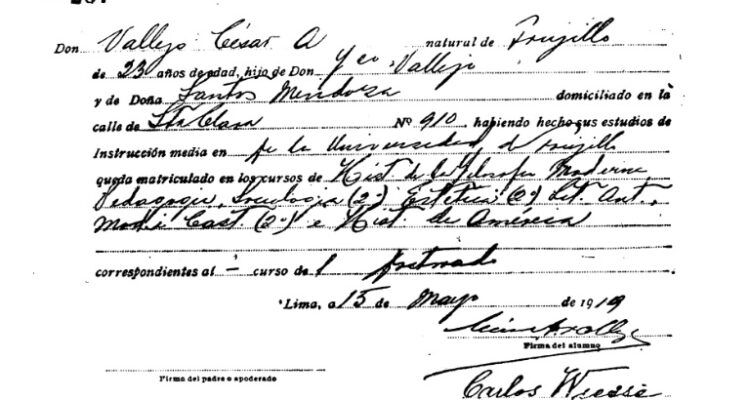 Don Vallejo César A natural de Trujillo
de 23 años de edad, hijo de Don Vallejo
y de Doña Santos Mendoza domiciliado en la
calle de Sta Clara Nº 910 habiendo hecho sus estudios de
Instrucción media en de la Universidad de Trujillo
queda matriculado en los cursos de Hist. de la Filosofía Moderna
Pedagogía, Sociología (2º) Estética (2º) Lit. Ant.
Mod. Cast. (2º) e Hist. de América
correspondientes al - curso de
Lima, a 15 de Mayo de 1919
Firma del alumno
Firma del padre o apoderado
Carlos Wiesse